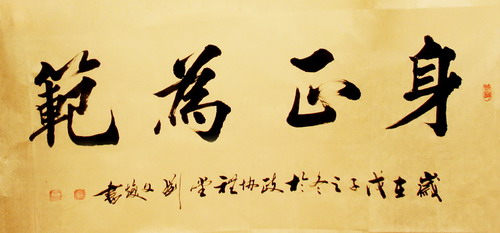 身正為範
歲在戊子之冬於政協禮堂劉
書